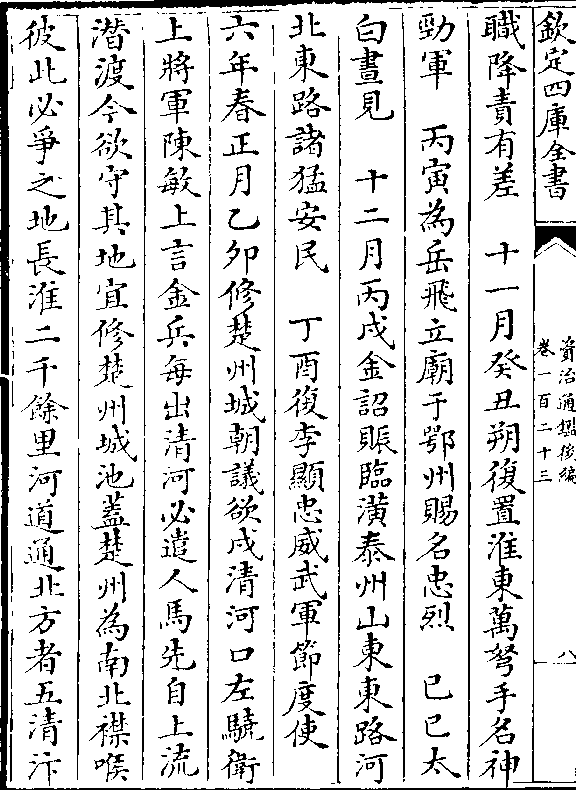 欽定四庫全書
資治通鑑後編
卷一百二十三
八
職降責有差　十一月癸丑朔復置淮東萬弩手名神
勁軍　丙寅為岳飛立廟于鄂州賜名忠烈　己巳太
白晝見　十二月丙戌金詔賑臨潢泰州山東東路河
北東路諸猛安民　丁酉復李顯忠威武軍節度使
六年春正月乙卯修楚州城朝議欲戍清河口左驍衛
上將軍陳敏上言金兵每出清河必遣人馬先自上流
潛渡今欲守其地宜修楚州城池蓋楚州為南北襟喉
彼此必爭之地長淮二千餘里河道通北方者五清汴